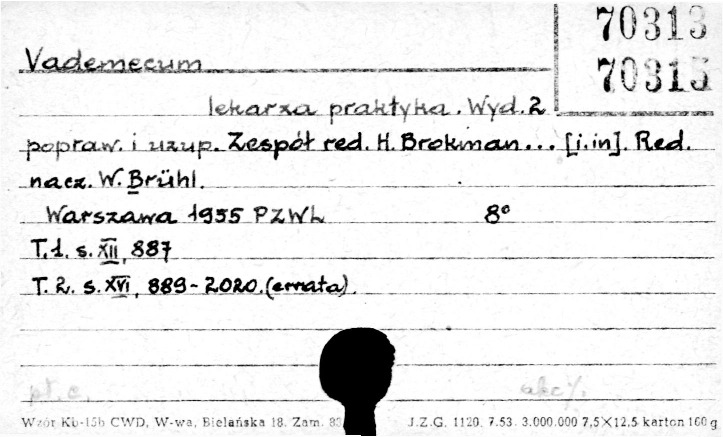 70313
70315
Vademecum
lekarza praktyka. Wyd. 2
popraw. i uzup. Zespół red. H. Brokman... [i.in]. Red.
nacz. W. Brühl.
Warszawa 1955 PZWL 8°
T. 1. s. XII, 887
T. 2. s. XVI, 889-2020. (errata).
pł. c.
Wzór Kb-15b CWD, W-wa, Bielańska 18. Zam. 83 J.Z.G. 1120. 7.53. 3.000.000 7,5×12,5 karton 160 g